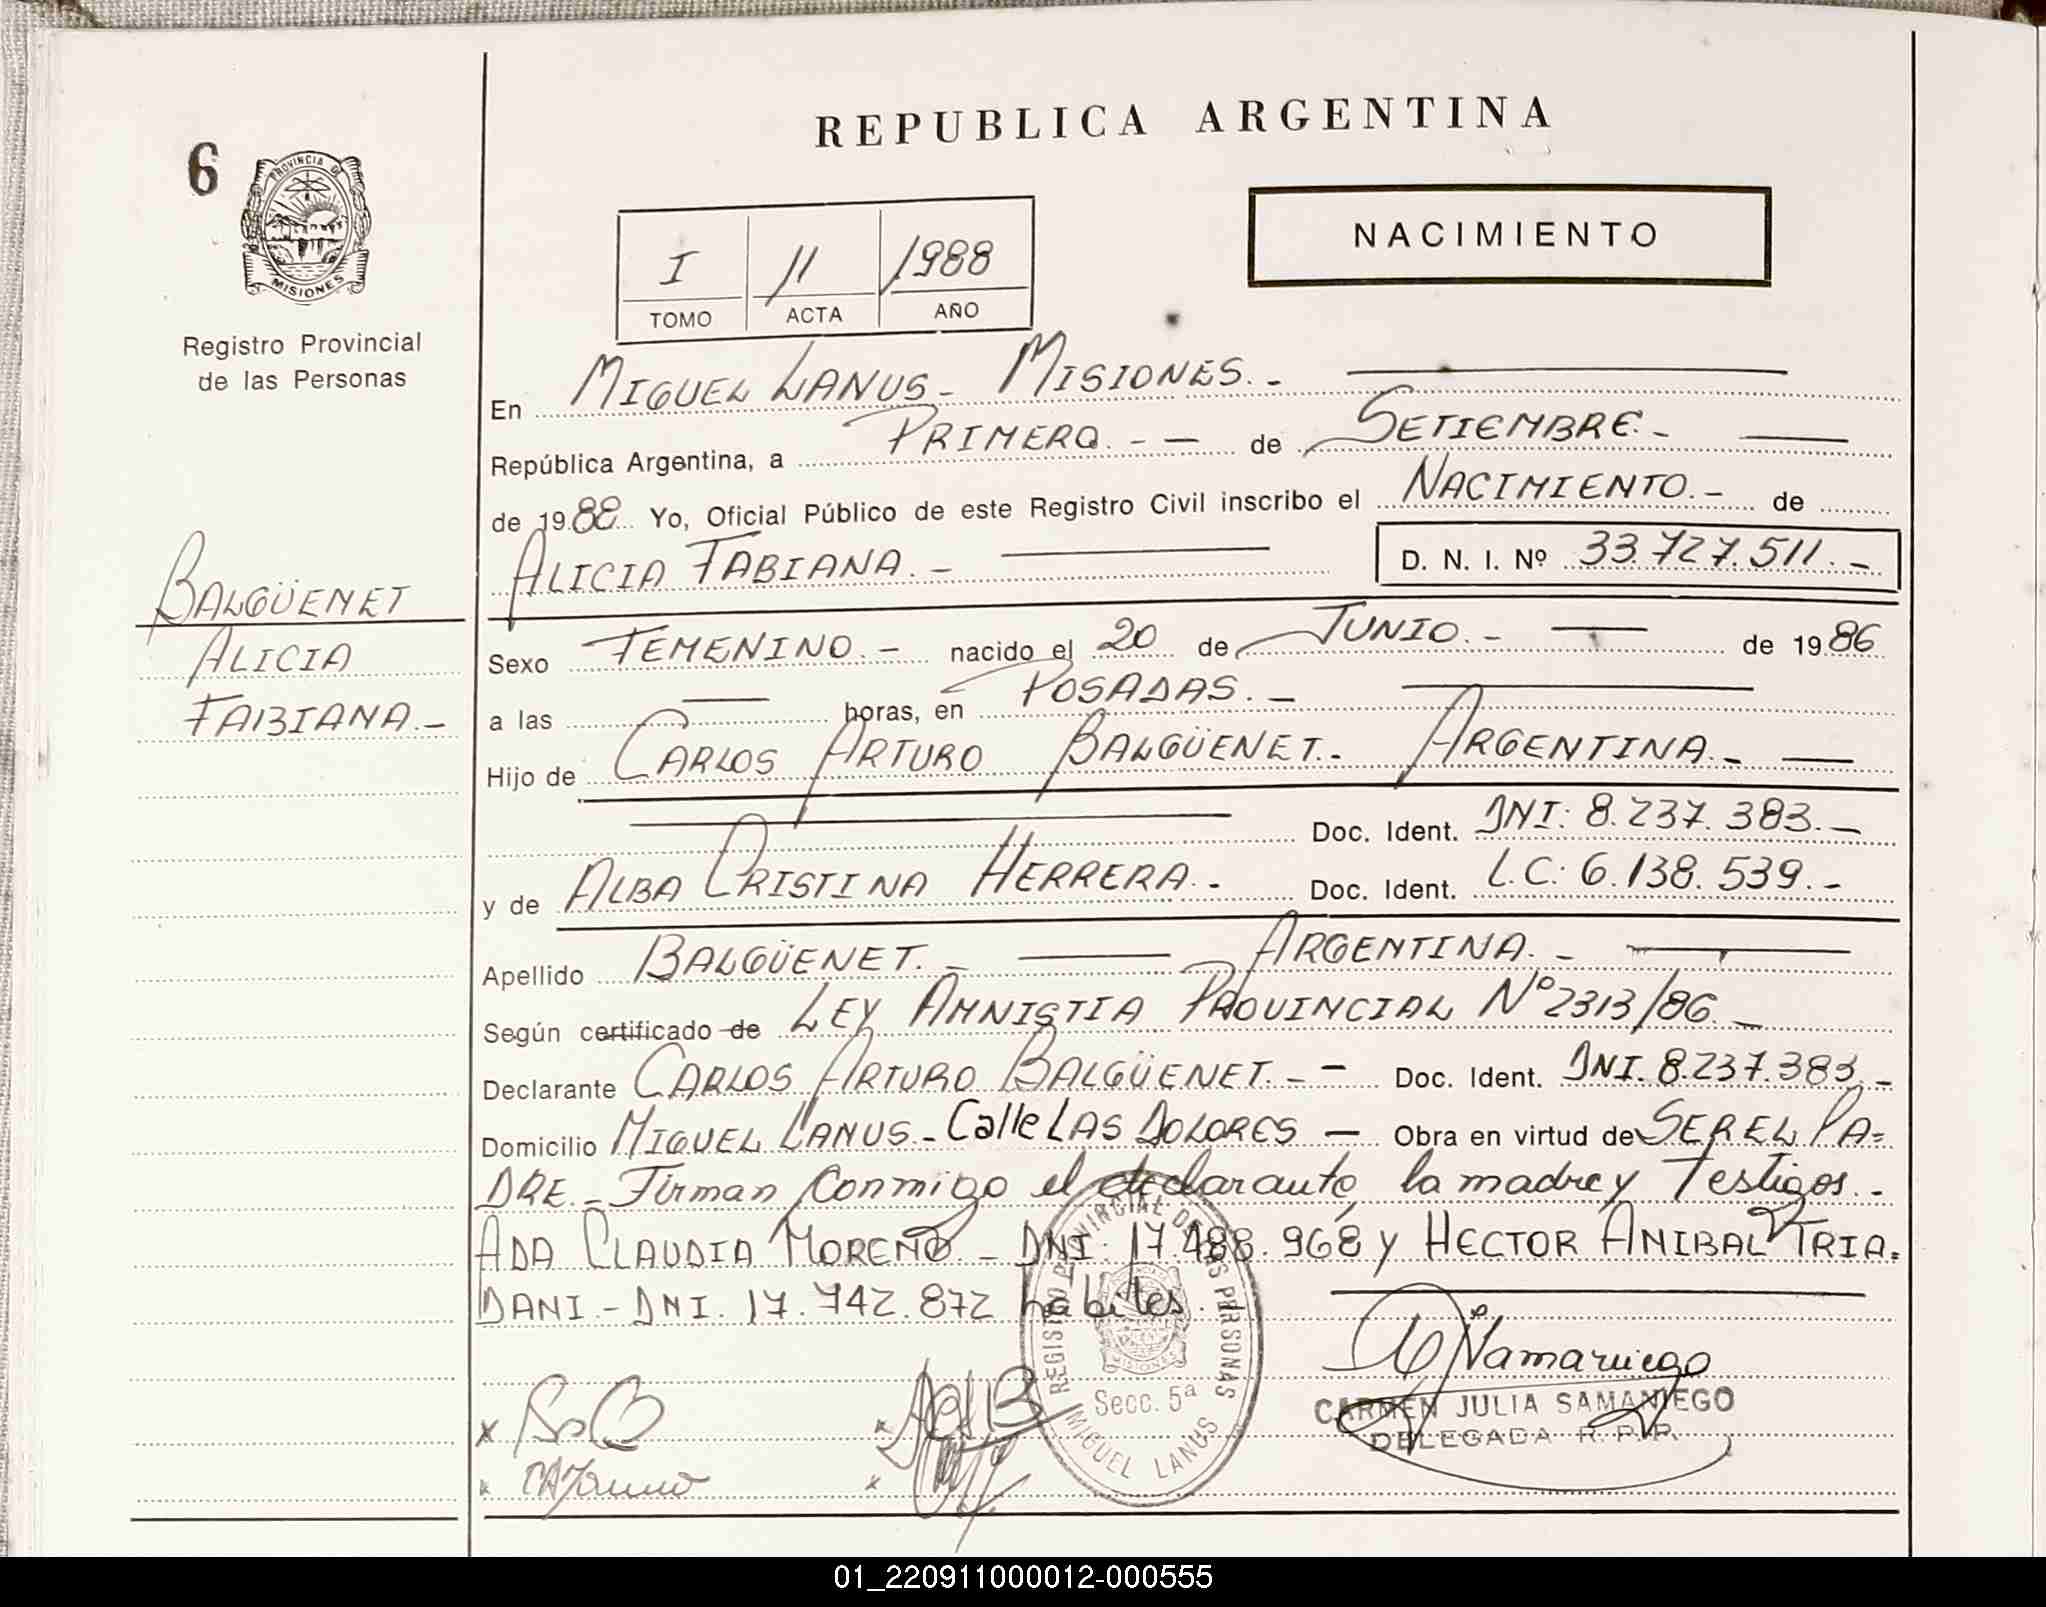 REPUBLICA ARGENTINA
6
PROVINCIA DE
MISIONES
Registro Provincial
de las Personas
I 11 1988
TOMO ACTA AÑO
NACIMIENTO
En MIGUEL LANUS - MISIONES. -
República Argentina, a PRIMERO. - - de SETIEMBRE. -
de 1988 Yo, Oficial Público de este Registro Civil inscribo el NACIMIENTO. - de
ALICIA FABIANA. - D. N. I. Nº 33.727.511. -
BALGÜENET
ALICIA
FABIANA. -
Sexo FEMENINO. - nacido el 20 de JUNIO. - de 1986
a las — horas, en POSADAS. -
Hijo de CARLOS ARTURO BALGÜENET. - ARGENTINA. -
Doc. Ident. DNI: 8.237.383. -
y de ALBA CRISTINA HERRERA. - Doc. Ident. L.C: 6.138.539. -
Apellido BALGÜENET. - ARGENTINA. -
Según certificado de LEY AMNISTIA PROVINCIAL Nº 2313/86. -
Declarante CARLOS ARTURO BALGÜENET. - - Doc. Ident. DNI. 8.237.383. -
Domicilio MIGUEL LANUS. - Calle LAS DOLORES — Obra en virtud de SER EL PA=
DRE. - Firman conmigo el declarante, la madre y Testigos. -
ADA CLAUDIA MORENO - DNI: 17.488.968 y HECTOR ANIBAL TRIA=
DANI - DNI. 17.742.872 habiles.
REGISTRO PROVINCIAL DE LAS PERSONAS
MISIONES
Secc. 5ª
MIGUEL LANUS
Samaniego
CARMEN JULIA SAMANIEGO
DELEGADA R. P. P.
01_220911000012-000555